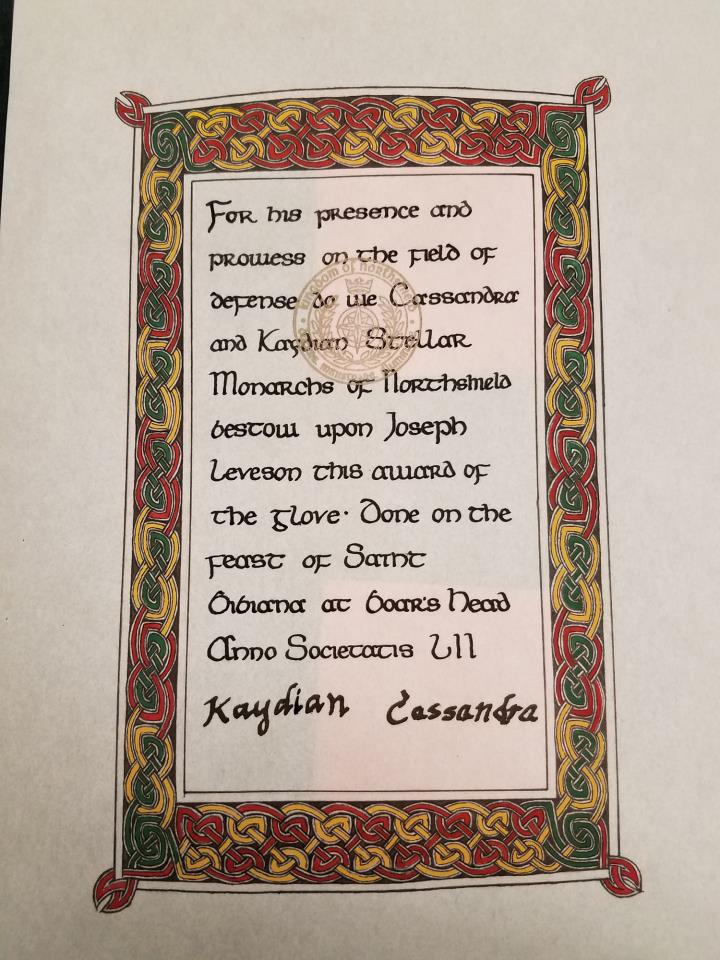 For his presence and
prowess on the field of
defense do we Cassandra
and Kaydian Stellar
Monarchs of Northshield
bestow upon Joseph
Leveson this award of
the glove. Done on the
feast of Saint
Bibiana at Boar's Head
Anno Societatis LII
Kaydian Cassandra
Kingdom of North